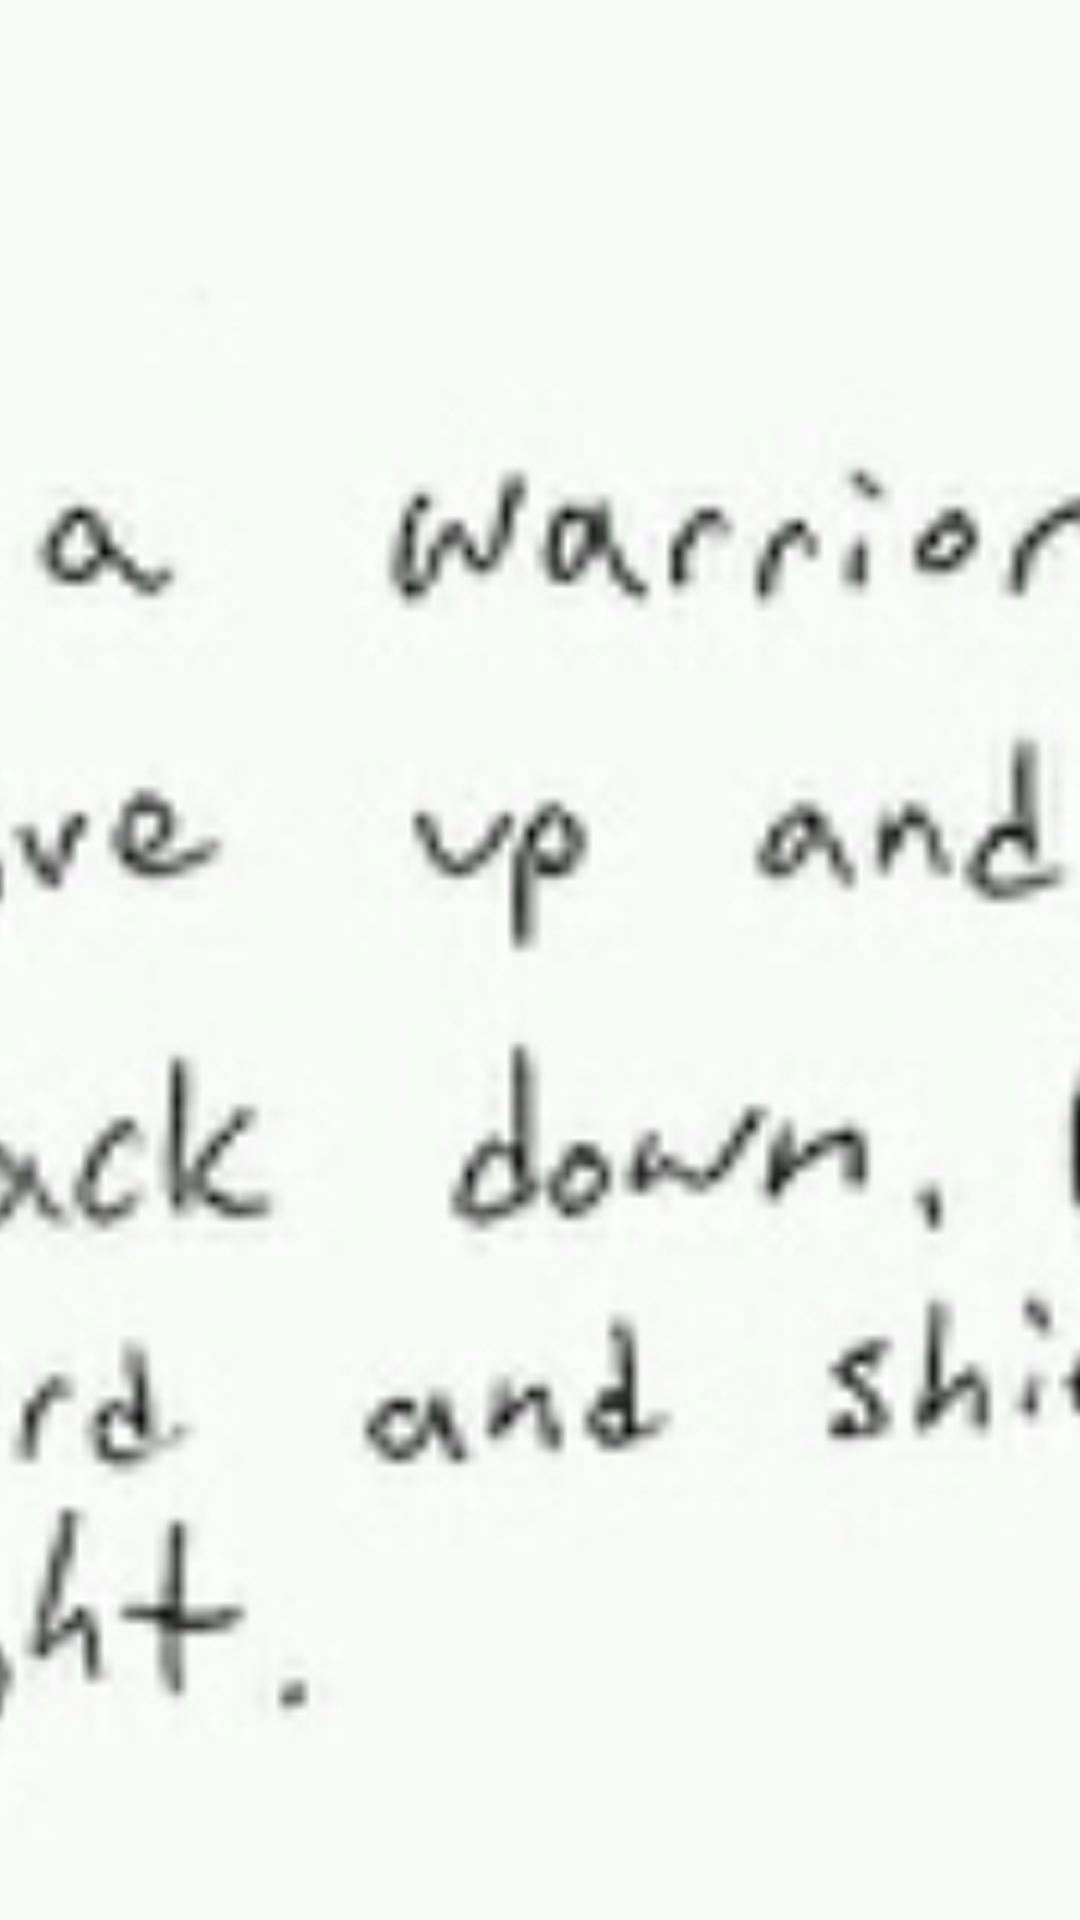 a warrior
ve up and
ack down.
rd and shi
ht.